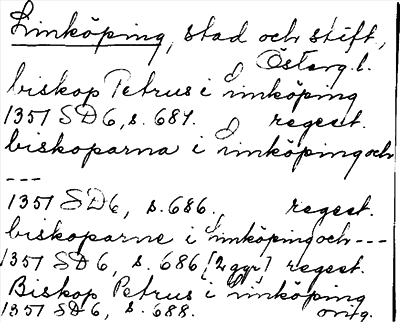 Linköping, stad och stift,
Österg.l.
biskop Petrus i Linköping
1351 SD6, s. 687. regest.
biskoparna i Linköping och
---
1351 SD6, s. 686. regest.
biskoparne i Linköping och ---
1351 SD6, s. 686 [2 ggr] regest.
Biskop Petrus i Linköping
1351 SD 6, s. 688. orig.